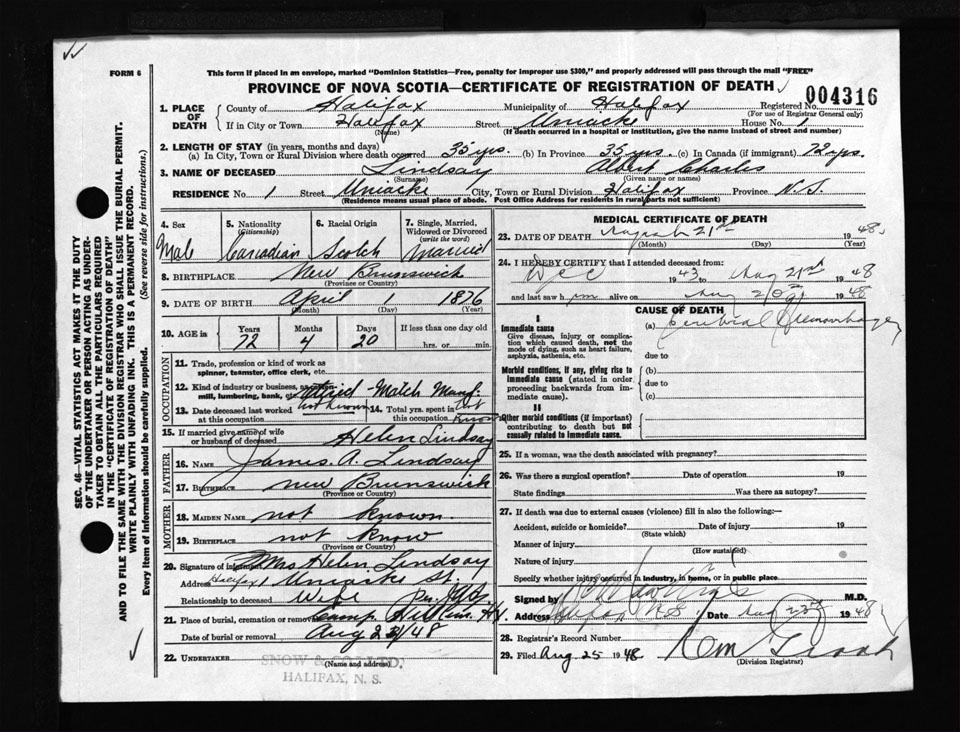 FORM 6
This form if placed in an envelope, marked "Dominion Statistics—Free, penalty for improper use $300," and properly addressed will pass through the mail "FREE"
PROVINCE OF NOVA SCOTIA—CERTIFICATE OF REGISTRATION OF DEATH
004316
1. PLACE OF DEATH
County of Halifax Municipality of Halifax Registered No.
(For use of Registrar General only)
If in City or Town Halifax Street Uniacke House No. 1
(Name) (If death occurred in a hospital or institution, give the name instead of street and number)
2. LENGTH OF STAY (in years, months and days)
(a) In City, Town or Rural Division where death occurred 35 yrs. (b) In Province 35 yrs. (c) In Canada (if immigrant) 72 yrs.
3. NAME OF DECEASED Lindsay Albert Charles
(Surname) (Given name or names)
RESIDENCE No 1 Street Uniacke City, Town or Rural Division Halifax Province N.S.
(Residence means usual place of abode. Post Office Address for residents in rural parts not sufficient)
4. Sex
Male
5. Nationality (Citizenship)
Canadian
6. Racial Origin
Scotch
7. Single, Married, Widowed or Divorced (write the word)
Married
8. BIRTHPLACE New Brunswick
(Province or Country)
9. DATE OF BIRTH April 1 1876
(Month) (Day) (Year)
10. AGE in
Years Months Days If less than one day old
72 4 20 hrs. or min.
OCCUPATION
11. Trade, profession or kind of work as spinner, teamster, office clerk, etc.
12. Kind of industry or business, as mill, lumbering, bank, etc. Match Manf.
13. Date deceased last worked at this occupation not known
14. Total yrs. spent in this occupation not known
15. If married give name of wife or husband of deceased Helen Lindsay
FATHER
16. NAME James. A. Lindsay
17. BIRTHPLACE new Brunswick
(Province or Country)
MOTHER
18. MAIDEN NAME not known.
19. BIRTHPLACE not know
(Province or Country)
20. Signature of informant Mrs Helen Lindsay
Address Halifax 1 Uniacke St.
Relationship to deceased Wife
21. Place of burial, cremation or removal Camp Hill Cem.
Date of burial or removal Aug 24/48
22. UNDERTAKER SNOW & CO. LTD.
(Name and address)
HALIFAX, N. S.
MEDICAL CERTIFICATE OF DEATH
23. DATE OF DEATH August 21st 1948
(Month) (Day) (Year)
24. I HEREBY CERTIFY that I attended deceased from:
Dec 1943 to Aug 21st 1948
and last saw him alive on Aug 20 1948
CAUSE OF DEATH
I
Immediate cause
Give disease, injury or complication which caused death, not the mode of dying, such as heart failure, asphyxia, asthenia, etc.
(a) Cerebral Hemorrhage
due to
Morbid conditions, if any, giving rise to immediate cause (stated in order proceeding backwards from immediate cause).
(b)
due to
(c)
II
Other morbid conditions (if important) contributing to death but not causally related to immediate cause.
25. If a woman, was the death associated with pregnancy?
26. Was there a surgical operation? Date of operation 19
State findings Was there an autopsy?
27. If death was due to external causes (violence) fill in also the following:—
Accident, suicide or homicide? Date of injury 19
(State which)
Manner of injury
(How sustained)
Nature of injury
Specify whether injury occurred in industry, in home, or in public place
Signed by M.D.
Address Halifax N.S. Date Aug 23rd 1948
28. Registrar's Record Number
29. Filed Aug 25 1948
(Division Registrar)
SEC. 46—VITAL STATISTICS ACT MAKES IT THE DUTY
OF THE UNDERTAKER OR PERSON ACTING AS UNDER-
TAKER TO OBTAIN ALL THE PARTICULARS REQUIRED
IN THE "CERTIFICATE OF REGISTRATION OF DEATH"
AND TO FILE THE SAME WITH THE DIVISION REGISTRAR WHO SHALL ISSUE THE BURIAL PERMIT.
WRITE PLAINLY WITH UNFADING INK. THIS IS A PERMANENT RECORD.
Every item of information should be carefully supplied. (See reverse side for instructions.)